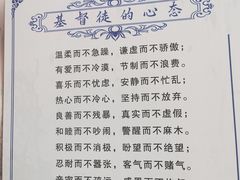 基督徒的心态
温柔而不急躁，谦虚而不骄傲；
有爱而不冷漠，节制而不浪费。
喜乐而不忧虑，安静而不忙乱；
热心而不冷心，坚持而不放弃。
良善而不残暴，真实而不虚假；
和睦而不吵闹，警醒而不麻木。
积极而不消极，盼望而不绝望；
忍耐而不嚣张，客气而不赌气。